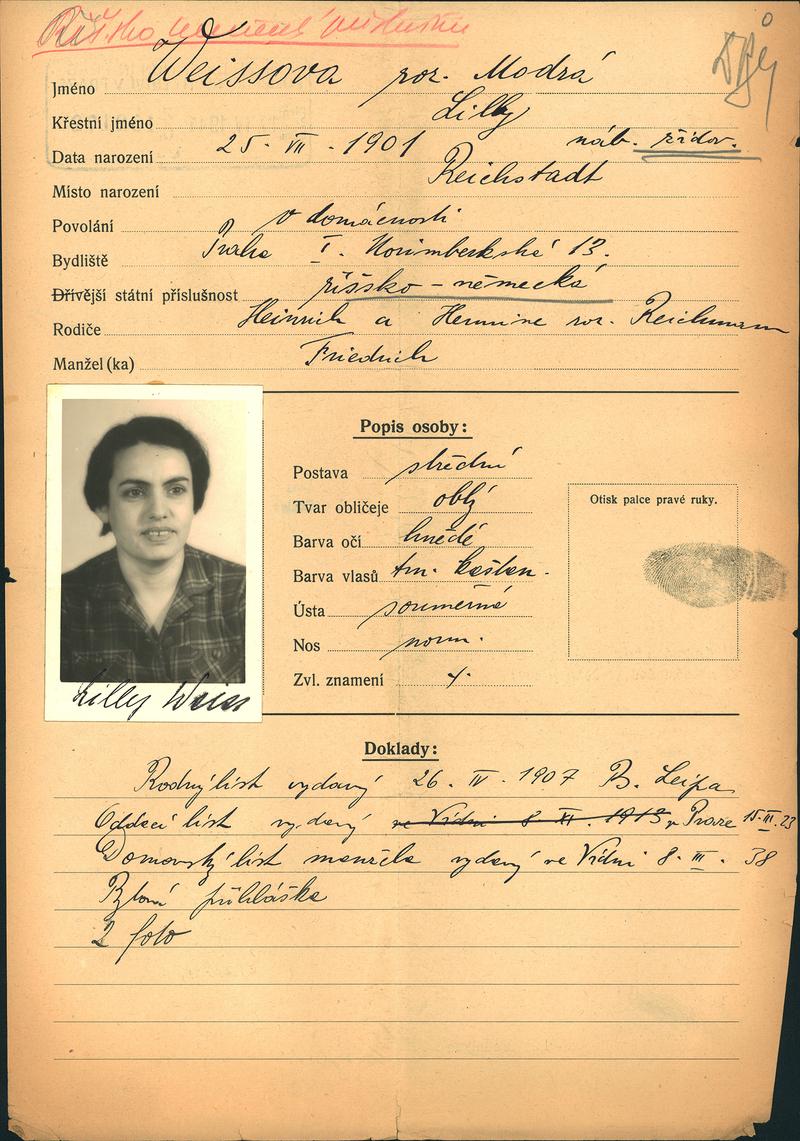 Weissova roz. Modrá
Jméno
Křestní jméno Lilly
Data narození 25. VII. 1901 náb. židov.
Místo narození Reichstadt
Povolání v domácnosti
Bydliště Praha I. Norimberkská 13.
Dřívější státní příslušnost říšsko-německá
Rodiče Heinrich a Hermine roz. Reichmann
Manžel (ka) Friedrich
Popis osoby:
Postava střední
Tvar obličeje oblý
Barva očí hnědé
Barva vlasů tm. kaštan.
Ústa souměrná
Nos norm.
Zvl. znamení
Otisk palce pravé ruky.
Lilly Weiss
Doklady:
Rodný list vydaný 26. IV. 1907 B. Leipa
Oddací list vydaný ve Vídni 8. XI. 1913 v Praze 15. III. 23
Domovský list manžela vydaný ve Vídni 8. III. 38
Bytová přihláška
2 foto